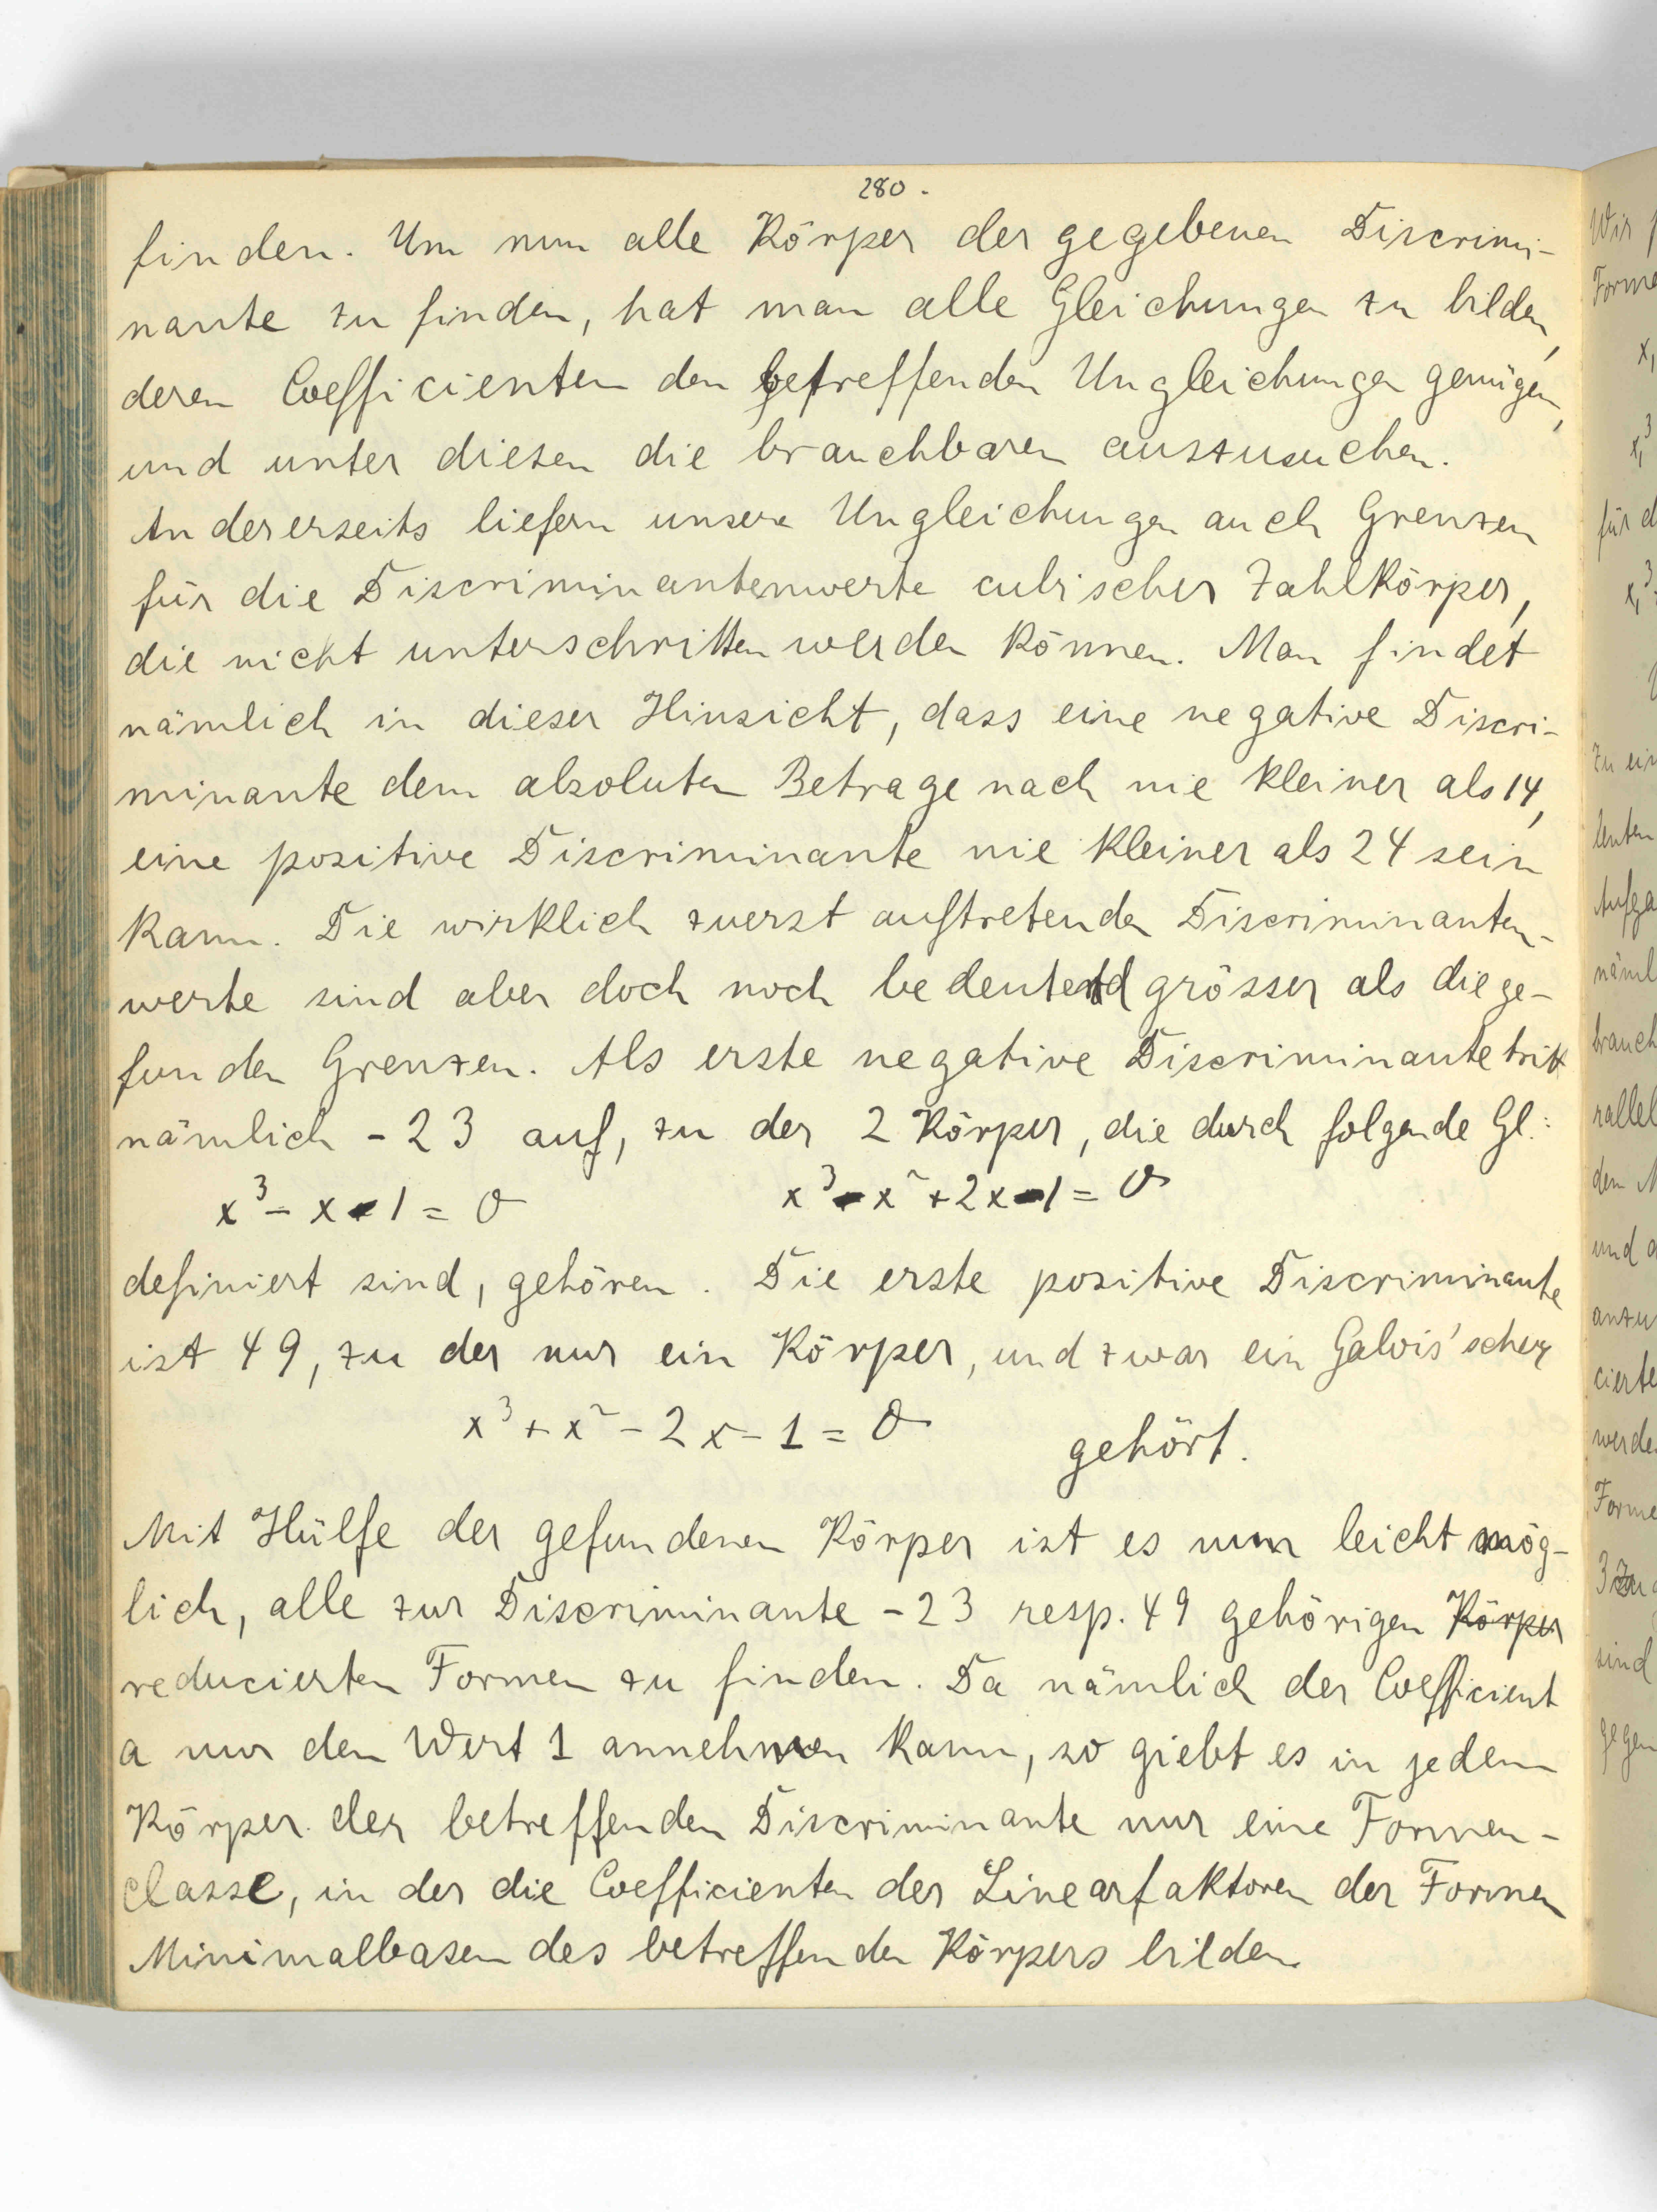 280.
finden. Um nun alle Körper der gegebenen Discrimi-
nante zu finden, hat man alle Gleichungen zu bilden,
deren Coefficienten den betreffenden Ungleichungen genügen,
und unter diesen die brauchbaren auszusuchen.
Andererseits liefern unsere Ungleichungen auch Grenzen
für die Discriminantenwerte cubischer Zahlkörper,
die nicht unterschritten werden können. Man findet
nämlich in dieser Hinsicht, dass eine negative Discri-
minante dem absoluten Betrage nach nie kleiner als 14,
eine positive Discriminante nie kleiner als 24 sein
kann. Die wirklich zuerst auftretenden Discriminanten-
werte sind aber doch noch bedeutend grösser als die ge-
funden Grenzen. Als erste negative Discriminante tritt
nämlich -23 auf, zu der 2 Körper, die durch folgende Gl.:
x³ - x - 1 = 0 x³ - x² + 2x - 1 = 0
definiert sind, gehören. Die erste positive Discriminante
ist 49, zu der nur ein Körper, und zwar ein Galois'scher
x³ + x² - 2x - 1 = 0 gehört.
Mit Hülfe der gefundenen Körper ist es nun leicht mög-
lich, alle zur Discriminante -23 resp. 49 gehörigen Körper
reducierten Formen zu finden. Da nämlich der Coefficient
a nur den Wert 1 annehmen kann, so giebt es in jedem
Körper der betreffenden Discriminante nur eine Formen-
classe, in der die Coefficienten der Linearfaktoren der Formen
Minimalbasen des betreffenden Körpers bilden.
Wir
x,
für d
zu ein
Unten
Aufga
näml
brauch
rallel
den M
und
anzu
cierte
werde
Forme
sind
gegen